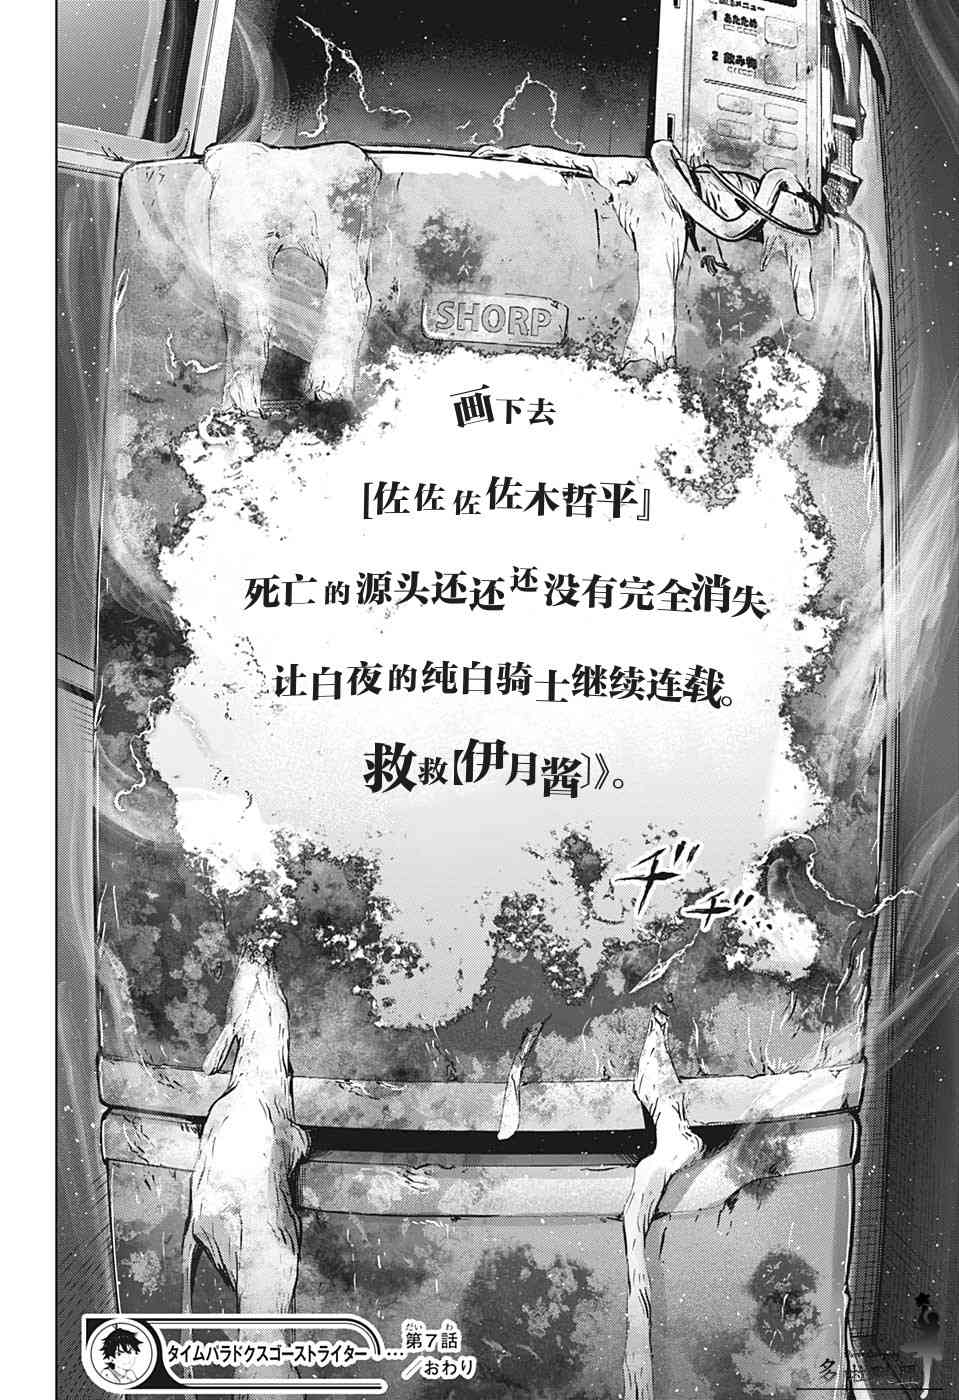 メニュー
1 あたため
2 飲み物
SHORP
画下去
[佐佐佐佐木哲平』
死亡的源头还还还没有完全消失
让白夜的纯白骑士继续连载。
救救【伊月酱〕》。
ヂヂ
ヂヂ…
タイムパラドクスゴーストライター……第7話／おわり
だい わ